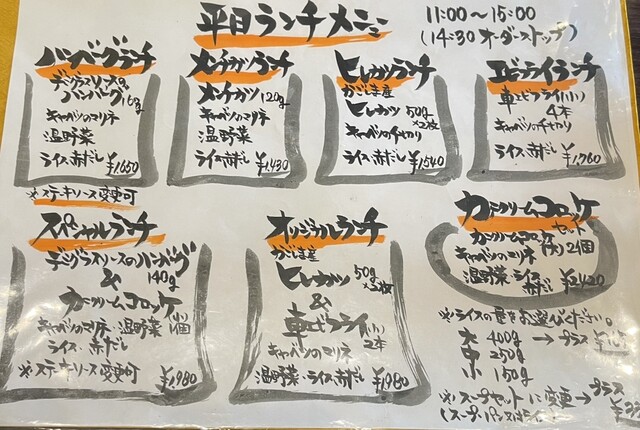 平日ランチメニュー
11:00～15:00
(14:30 オーダーストップ)
ハンバーグランチ
デミグラスソースの
ハンバーグ
キャベツのマリネ
温野菜
ライス・赤だし ¥1,650
※ステーキソース変更可
メンチカツランチ
メンチカツ 120g
キャベツのマリネ
温野菜
ライス・赤だし ¥1,430
ヒレカツランチ
かごしま産
ヒレカツ 50g×2枚
キャベツの千切り
ライス・赤だし ¥1,540
エビフライランチ
車エビフライ(小)
4本
キャベツの千切り
ライス・赤だし ¥1,760
スペシャルランチ
デミグラスソースのハンバーグ
140g
&
カニクリームコロッケ
キャベツのマリネ・温野菜 1個
ライス・赤だし
※ステーキソース変更可 ¥1,980
オリジナルランチ
かごしま産
ヒレカツ 50g
&
車エビフライ(小)
2本
キャベツのマリネ
温野菜・ライス・赤だし ¥1,980
カニクリームコロッケ
カニクリームコロッケ セット
2個
キャベツのマリネ
温野菜・ライス
赤だし ¥2,420
※ライスの量をお選びください。
大 400g → プラス
中 250g
小 150g
※スープセットに変更→プラス
(スープ・パン又はライス)